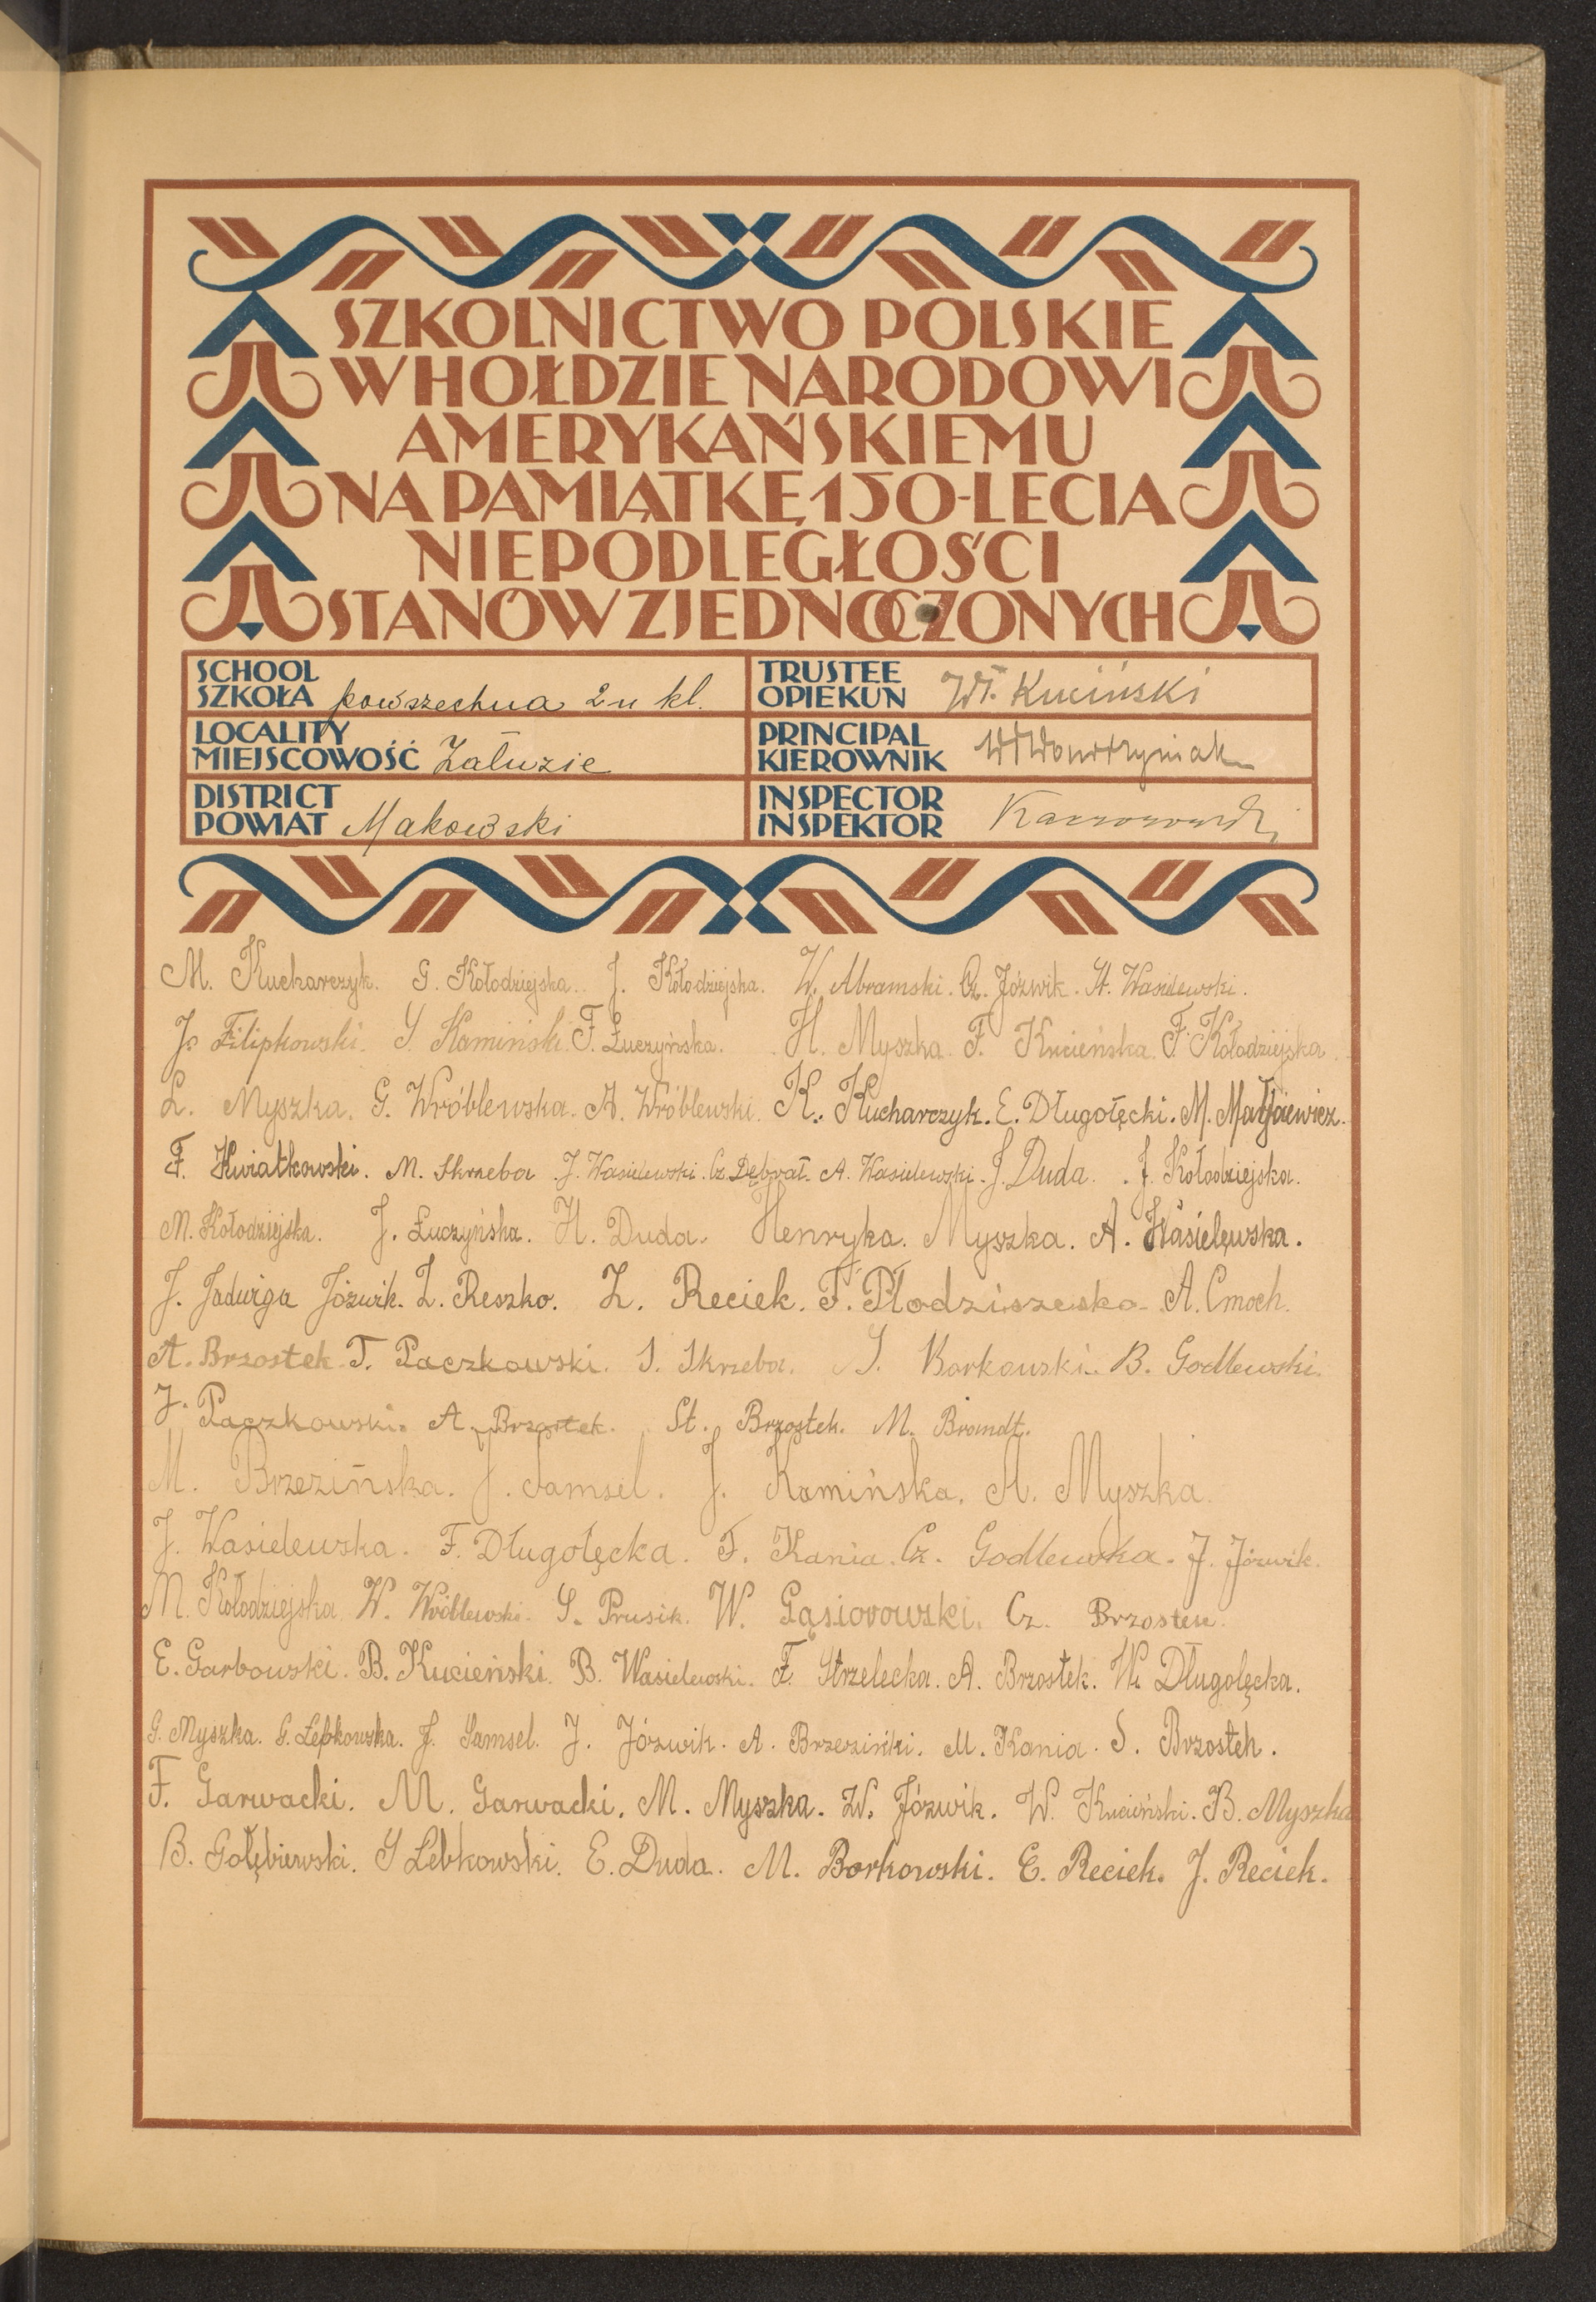 SZKOLNICTWO POLSKIE
W HOŁDZIE NARODOWI
AMERYKAŃSKIEMU
NA PAMIĄTKĘ 150-LECIA
NIEPODLEGŁOŚCI
STANÓW ZJEDNOCZONYCH
SCHOOL
SZKOŁA powszechna 2-u kl.
TRUSTEE
OPIEKUN Wł. Kuciński
LOCALITY
MIEJSCOWOŚĆ Załuzie
PRINCIPAL
KIEROWNIK WłWawrzyniak
DISTRICT
POWIAT Makowski
INSPECTOR
INSPEKTOR
M. Kucharczyk. G. Kołodziejska. J. Kołodziejska. W. Abramski. Cz. Józwik. St. Wasilewski.
J. Filipkowski. S. Kamiński. F. Łuczyńska. H. Myszka. F. Kucieńska. F. Kołodziejska.
L. Myszka. G. Wróblewska. A. Wróblewski. K. Kucharczyk. E. Długołęcki. M. Matjaiewicz.
F. Kwiatkowski. M. Skrzeba. J. Wasielewski. Cz. Dębrał. A. Wasielewski. J. Duda. J. Kołodziejska.
M. Kołodziejska. J. Łuczyńska. H. Duda. Henryka. Myszka. A. Wasielewska.
J. Jadwiga Józwik. L. Reszko. Z. Reciek. F. Płodziszewska. A. Cmoch.
A. Brzostek. T. Paczkowski. S. Skrzeba. S. Borkowski. B. Godlewski.
J. Paczkowski. A. Brzostek. St. Brzostek. M. Brandt.
M. Brzezińska. J. Samsel. J. Kamińska. A. Myszka.
J. Wasielewska. F. Długołęcka. F. Kania. Cz. Godlewska. J. Józwik.
M. Kołodziejska W. Wróblewski. S. Prusik. W. Gąsiorowski. Cz. Brzostek.
E. Garbowski. B. Kucieński. B. Wasielewski. F. Strzelecka. A. Brzostek. W. Długolęcka.
G. Myszka. G. Łepkowska. J. Samsel. J. Józwik. A. Brzeziński. M. Kania. S. Brzostek.
F. Garwacki. M. Garwacki. M. Myszka. W. Józwik. W. Kucieński. B. Myszka
B. Gołębiewski. S Lebkowski. E. Duda. M. Borkowski. E. Reciek. J. Reciek.